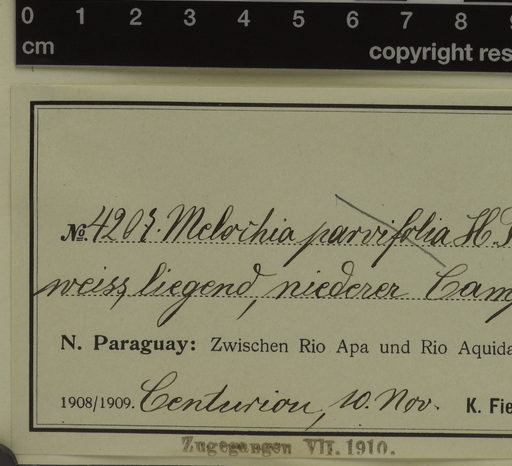 0 1 2 3 4 5 6 7 8
cm
copyright res
№ 420 Melochia parvifolia H.
weiss, liegend, niederer Cam
N. Paraguay: Zwischen Rio Apa und Rio Aquida
1908/1909. Centurion, 10. Nov. K. Fie
Zugegangen VII. 1910.